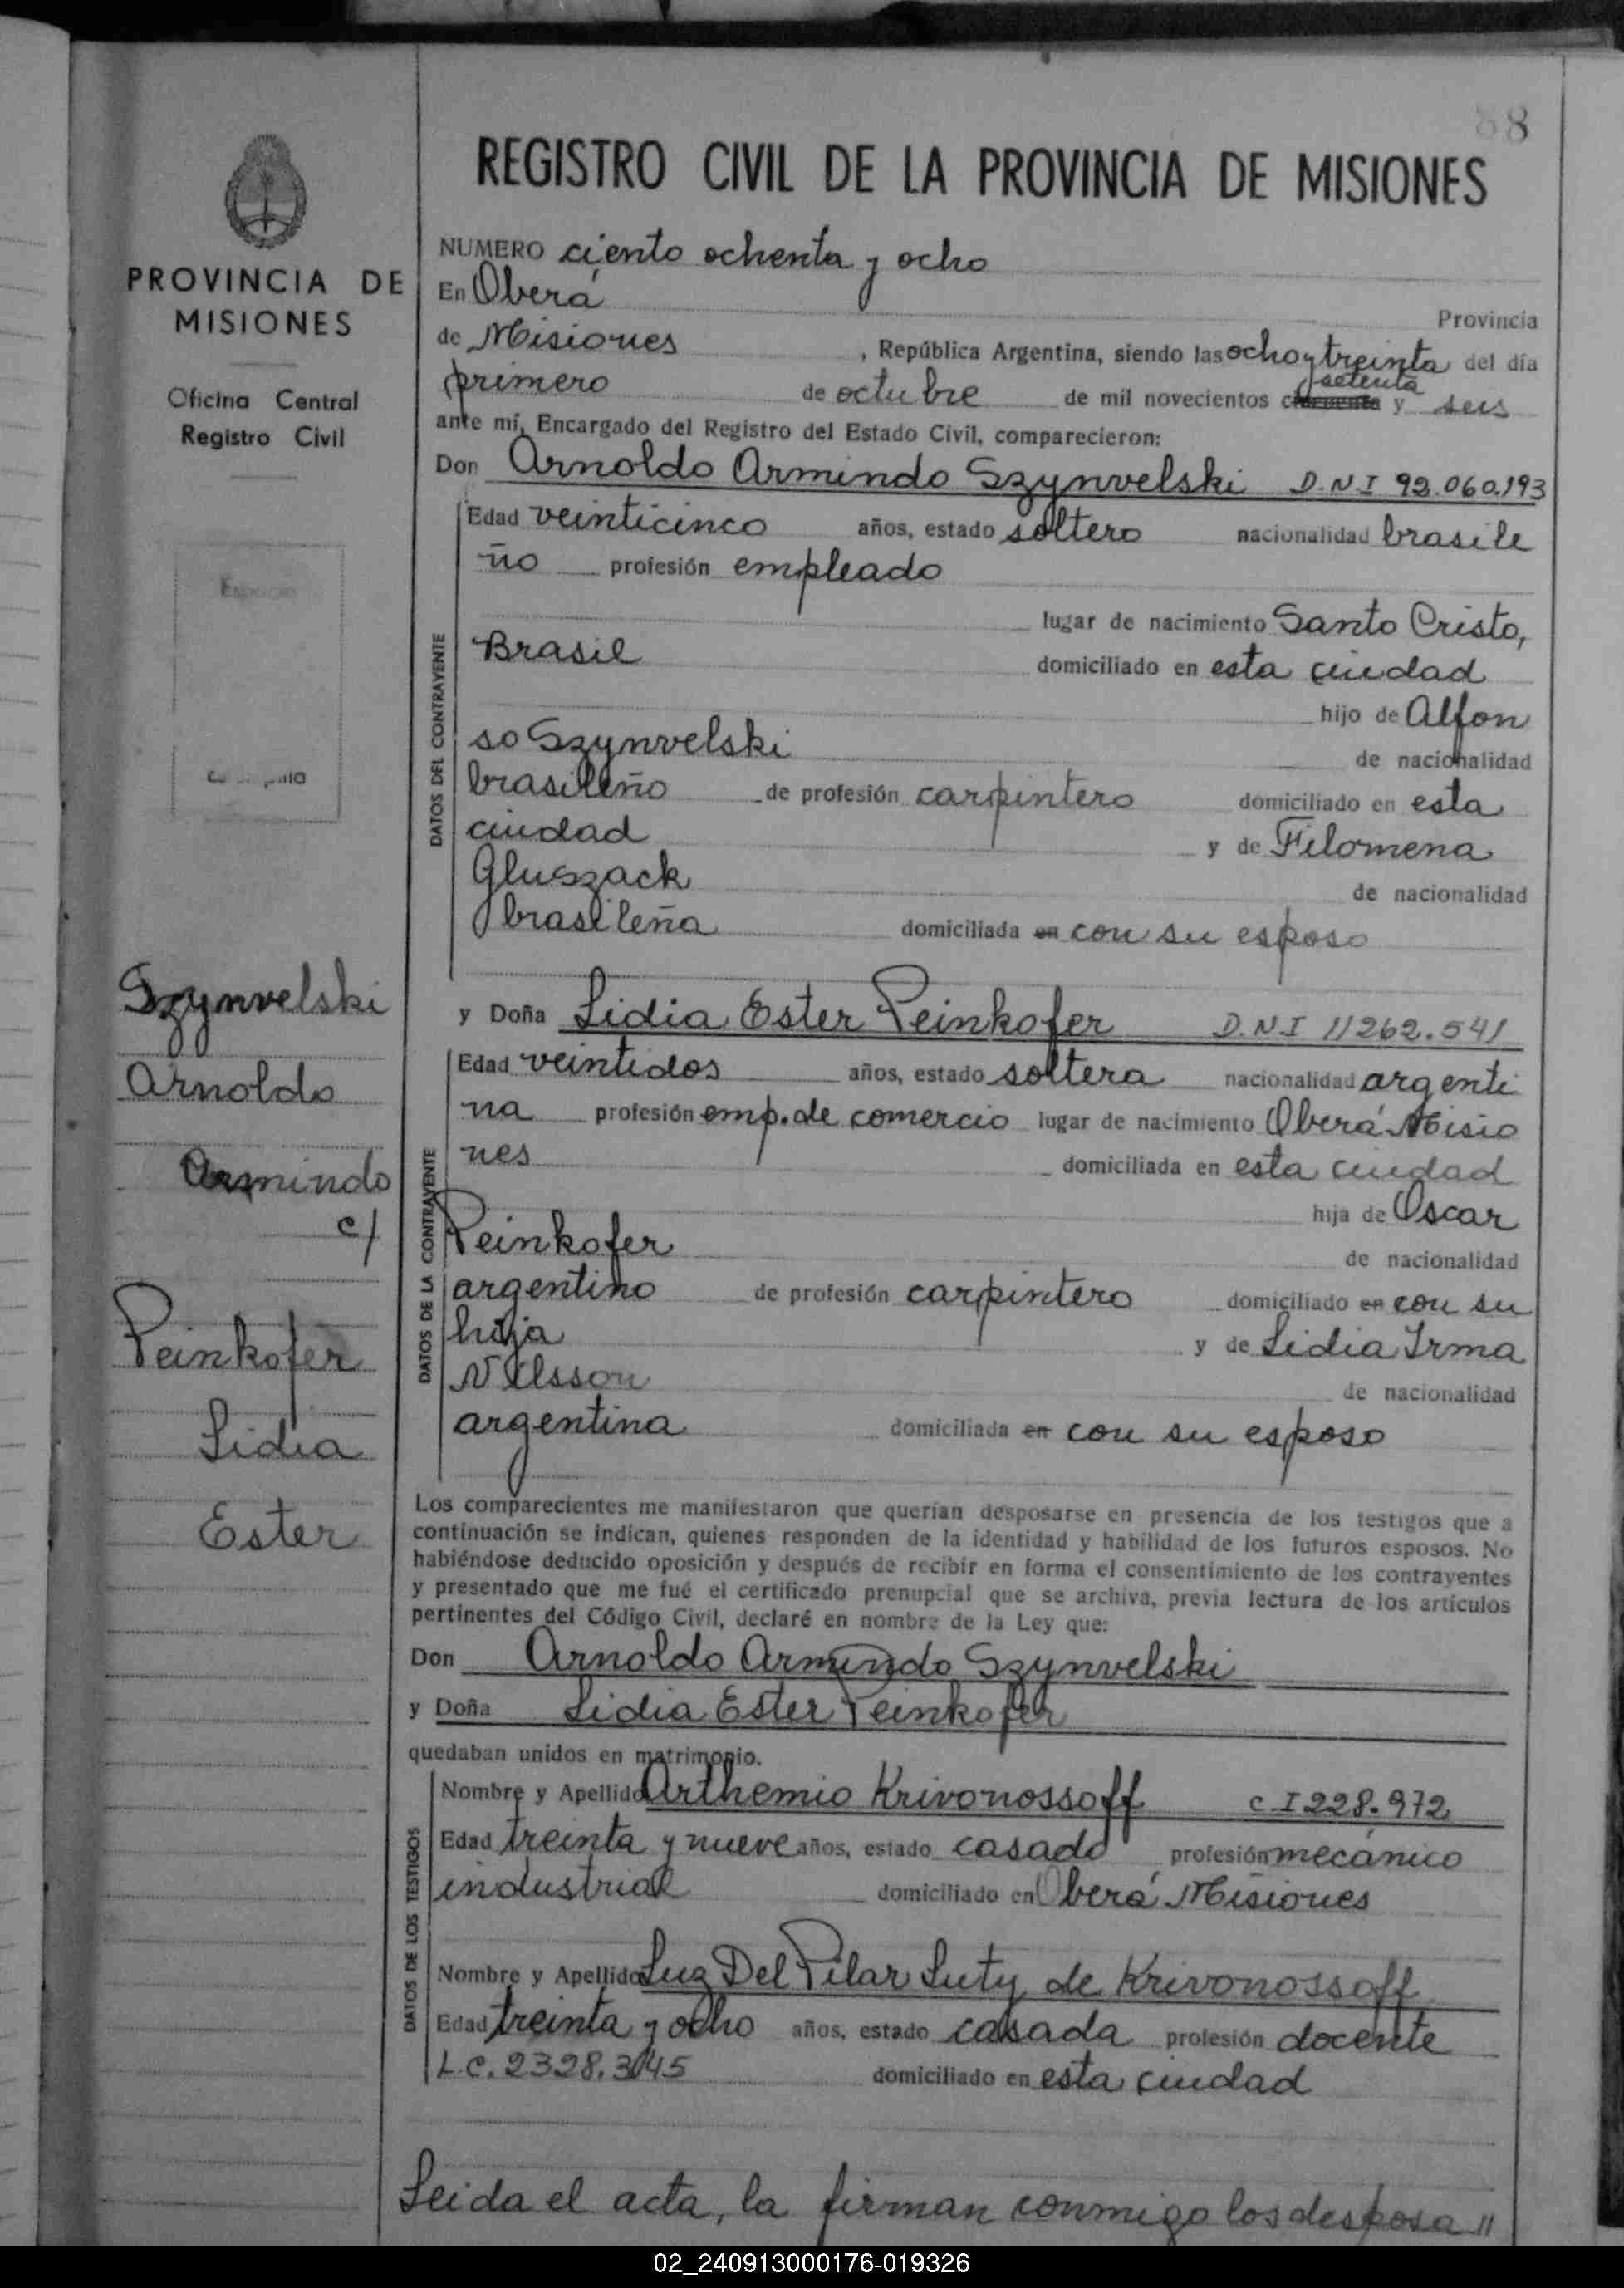 88
REGISTRO CIVIL DE LA PROVINCIA DE MISIONES
PROVINCIA DE
MISIONES
Oficina Central
Registro Civil
Szynvelski
Arnoldo
Armindo
c/
Peinkofer
Lidia
Ester
NUMERO ciento ochenta y ocho
En Oberá
Provincia
de Misiones , República Argentina, siendo las ocho y treinta del día
primero de octubre de mil novecientos cincuenta setenta y seis
ante mí, Encargado del Registro del Estado Civil, comparecieron:
Don Arnoldo Armindo Szynvelski D.N.I 92.060.193
DATOS DEL CONTRAYENTE
Edad veinticinco años, estado soltero nacionalidad brasile
ño profesión empleado
lugar de nacimiento Santo Cristo,
Brasil domiciliado en esta ciudad
hijo de Alfon
so Szynvelski de nacionalidad
brasileño de profesión carpintero domiciliado en esta
ciudad y de Filomena
Gluszack de nacionalidad
brasileña domiciliada en con su esposo
y Doña Lidia Ester Peinkofer D.N.I 11262.541
DATOS DE LA CONTRAYENTE
Edad veintidos años, estado soltera nacionalidad argenti
na profesión emp. de comercio lugar de nacimiento Oberá Misio
nes domiciliada en esta ciudad
hija de Oscar
Peinkofer de nacionalidad
argentino de profesión carpintero domiciliado en con su
hija y de Lidia Irma
Nilsson de nacionalidad
argentina domiciliada en con su esposo
Los comparecientes me manifestaron que querían desposarse en presencia de los testigos que a
continuación se indican, quienes responden de la identidad y habilidad de los futuros esposos. No
habiéndose deducido oposición y después de recibir en forma el consentimiento de los contrayentes
y presentado que me fué el certificado prenupcial que se archiva, previa lectura de los artículos
pertinentes del Código Civil, declaré en nombre de la Ley que:
Don Arnoldo Armindo Szynvelski
y Doña Lidia Ester Peinkofer
quedaban unidos en matrimonio.
DATOS DE LOS TESTIGOS
Nombre y Apellido Arthemio Krivonossoff C.I 228.972
Edad treinta y nueve años, estado casado profesión mecánico
industrial domiciliado en Oberá Misiones
Nombre y Apellido Luz Del Pilar Luty de Krivonossoff
Edad treinta y ocho años, estado casada profesión docente
L.C. 2328.3045 domiciliado en esta ciudad
Leida el acta, la firman conmigo los desposa "
02_240913000176-019326